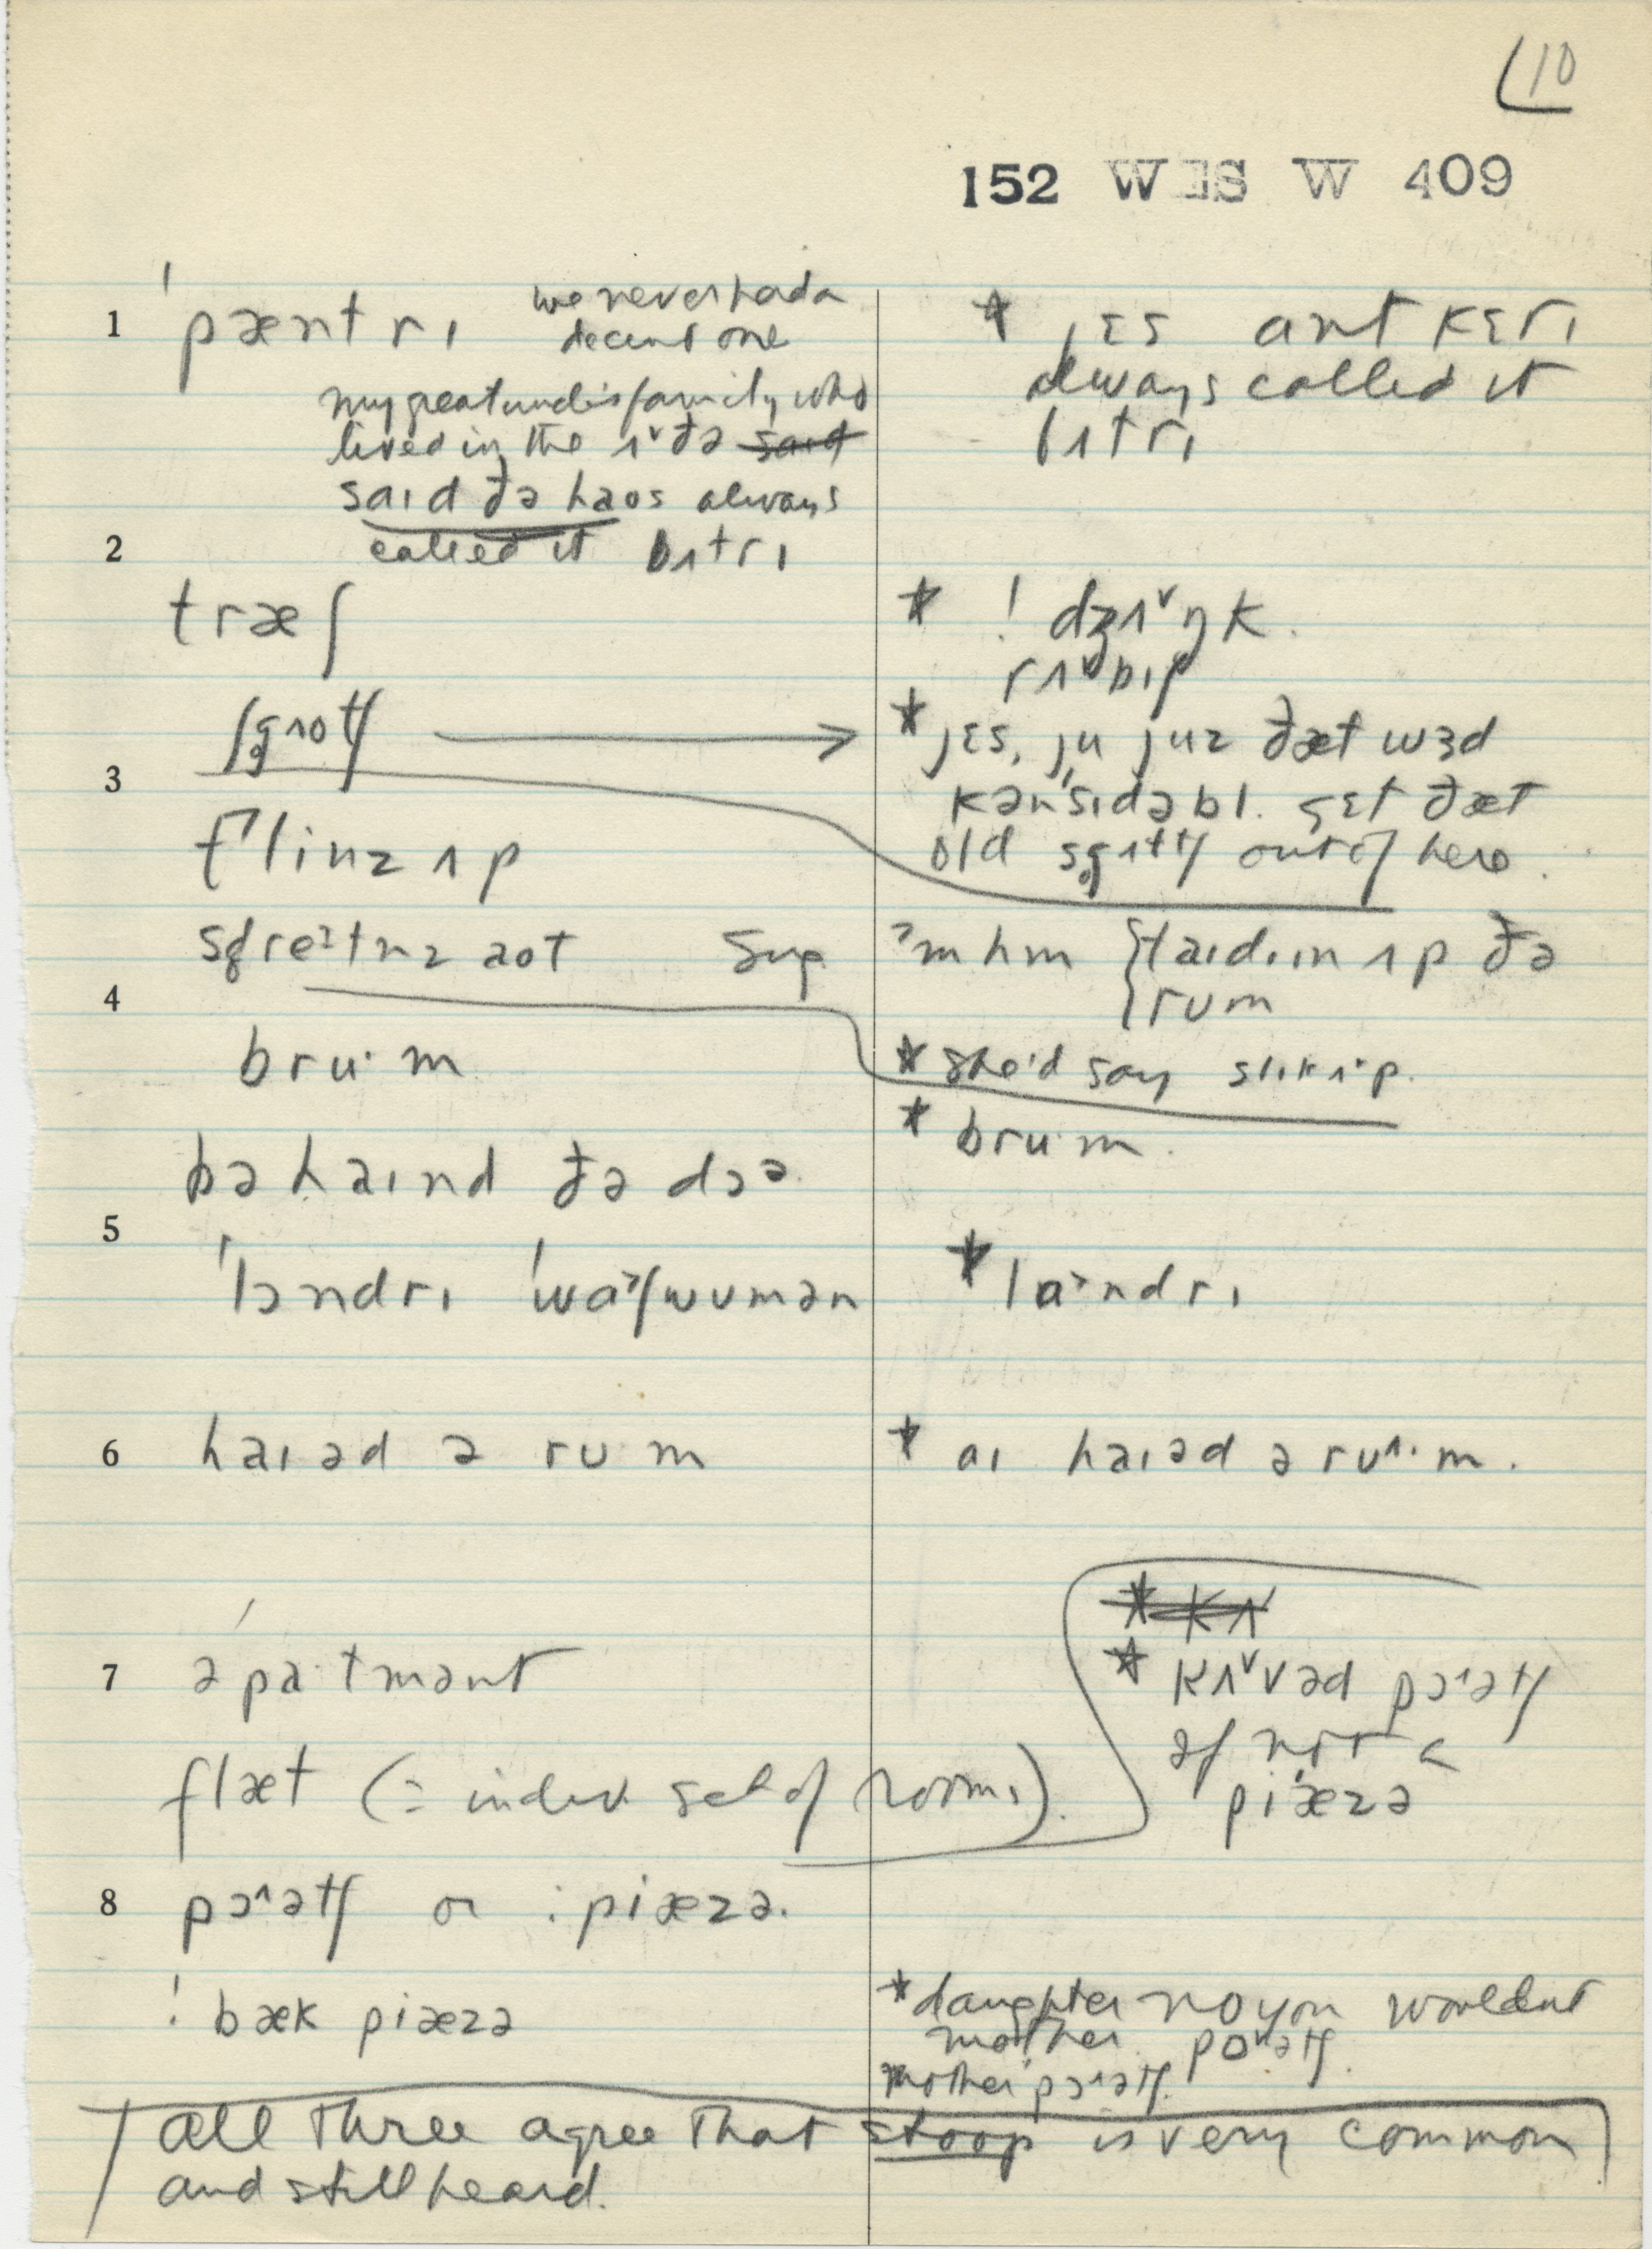 10
152 WES W 409
1 ˈpæntrɪ we never had a
decent one
my great uncle's family who
lived in the ʌˇðə said
saɪd ðə haos always
called it bʌtrɪ
* jɛs aunt kɛrɪ
always called it
bʌtrɪ
2
træʃ
* ! dʒʌˇŋk.
rʌˇbɪʃ
* jɛs, ju juz ðæt wɜd
kənˈsɪdəbl. gɛt ðæt
old out of here.
3
klinz ʌp
aot Sug
ˀmhm {taɪdɪɪn ʌp ðə
{rum
4
* she'd say slɪkʌˑp.
bru·m
* bru·m.
bəhaɪnd ðə dɔə.
5
ˈlɔndrɪ ˈwɑ˃ʃwumən
* lɑ˃ndrɪ
6 haɪəd ə rum
* aɪ haɪəd ə ruˑm.
* kʌ
7 əˈpa·tmənt
* kʌˇvəd pɔ˄ətʃ
ɪf nɔt ə
piæzə
flæt (= indiv. set of rooms).
8 pɔ˄ətʃ or : piæzə.
! bæk piæzə
* daughter no you wouldn't
mother poətʃ.
mother pɔ˄ətʃ.
all three agree that stoop is very common
and still heard.